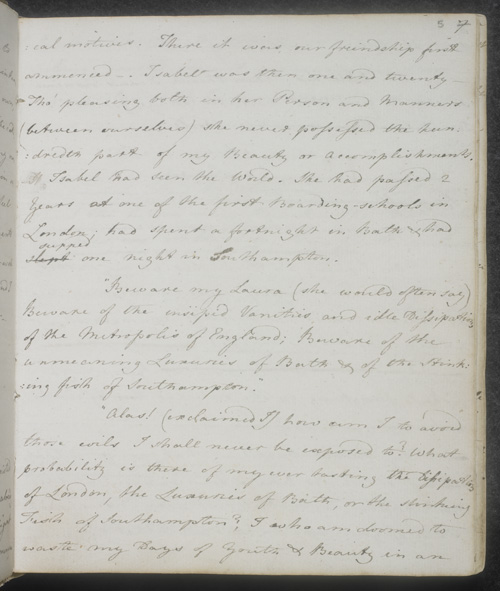 8 7
:cal motives. There it was our freindship first
commenced -. Isabel was then one and twenty -
Tho' pleasing both in her Person and Manners
(between ourselves) she never possessed the hun:
:dredth part of my Beauty or Accomplishments.
Isabel had seen the World. She had passed 2
Years at one of the first Boarding-schools in
London; had spent a fortnight in Bath & had
supped
slept one night in Southampton.
"Beware my Laura (she would often say)
Beware of the insipid Vanities and idle Dissipations
of the Metropolis of England; Beware of the
unmeaning Luxuries of Bath & of the Stink:
:ing fish of Southampton."
"Alas! (exclaimed I) how am I to avoid
those evils I shall never be exposed to? What
probability is there of my ever tasting the Dissipations
of London, the Luxuries of Bath, or the stinking
Fish of Southampton? I who am doomed to
waste my Days of Youth & Beauty in an